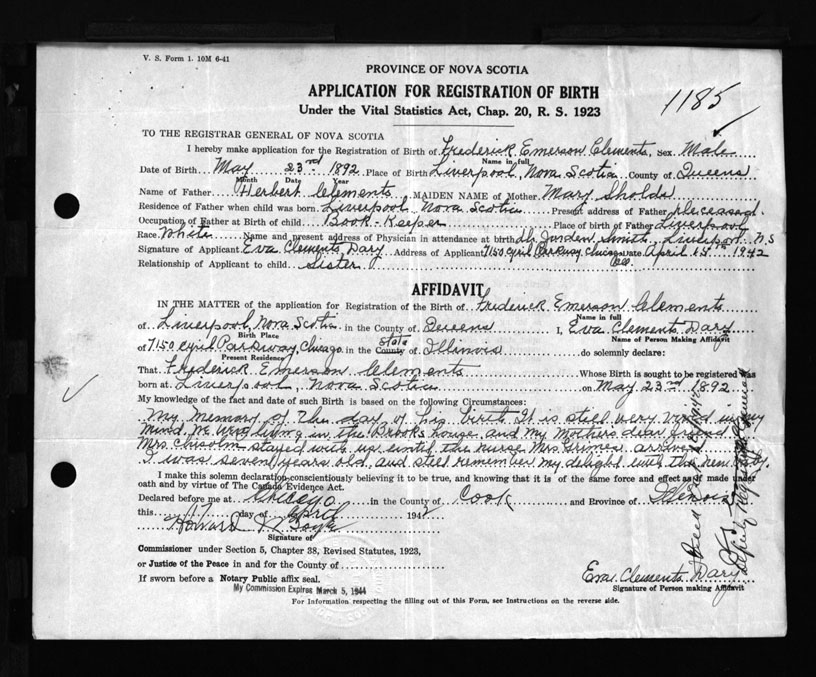 V. S. Form 1. 10M 6-41
PROVINCE OF NOVA SCOTIA
APPLICATION FOR REGISTRATION OF BIRTH
Under the Vital Statistics Act, Chap. 20, R. S. 1923
1185
TO THE REGISTRAR GENERAL OF NOVA SCOTIA
I hereby make application for the Registration of Birth of Frederick Emerson Clements, Sex Male
Name in full
Date of Birth May 23rd 1892 Place of Birth Liverpool, Nova Scotia County of Queens
Month Date Year
Name of Father Herbert Clements MAIDEN NAME of Mother Mary Sholds
Residence of Father when child was born Liverpool Nova Scotia Present address of Father deceased
Occupation of Father at Birth of child Book-Keeper Place of birth of Father Liverpool
Race White Name and present address of Physician in attendance at birth Dr. Jorden Smith, Liverpool N.S
Signature of Applicant Eva Clements Dary Address of Applicant 7150 Cyril Parkway Chicago Date April 15th 1942
Ill.
Relationship of Applicant to child Sister
AFFIDAVIT
IN THE MATTER of the application for Registration of the Birth of Frederick Emerson Clements
Name in full
of Liverpool, Nova Scotia in the County of Queens I, Eva Clements Dary
Birth Place Name of Person Making Affidavit
of 7150 Cyril Parkway, Chicago in the County state of Illinois do solemnly declare:
Present Residence
That Frederick Emerson Clements Whose Birth is sought to be registered was
born at Liverpool, Nova Scotia on May 23rd 1892
My knowledge of the fact and date of such Birth is based on the following Circumstances:
My memory of the day of his birth It is still very vivid in my
mind. We were living in the Brooks house and my Mothers dear friend
Mrs Chisolm stayed with us until the nurse Mrs Grimes arrived
I was seven years old, and still remember my delight with the new baby.
I make this solemn declaration conscientiously believing it to be true, and knowing that it is of the same force and effect as if made under
oath and by virtue of The Canada Evidence Act.
Declared before me at Chicago in the County of Cook and Province of Illinois
this 17 day of April 1942
Howard
Signature of
Commissioner under Section 5, Chapter 38, Revised Statutes, 1923,
or Justice of the Peace in and for the County of
If sworn before a Notary Public affix seal.
My Commission Expires March 5, 1944
Eva Clements Dary
Signature of Person making Affidavit
For Information respecting the filling out of this Form, see Instructions on the reverse side.